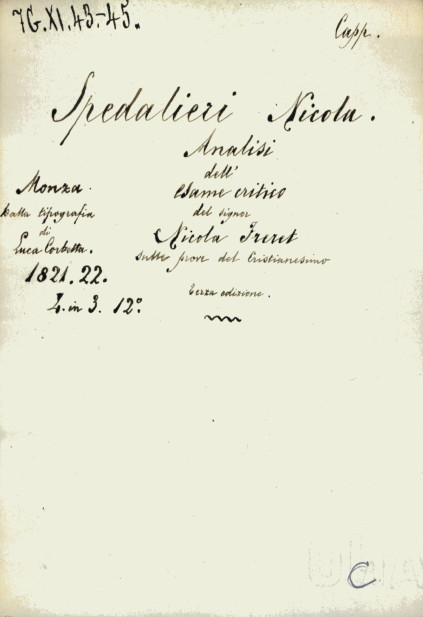 7G.XI.43-45.
Capp.
Spedalieri Nicola.
Analisi
dell'
esame critico
del signor
Nicola Freret
sulle prove del Cristianesimo
terza edizione.
Monza.
dalla tipografia
di
Luca Corbetta.
1821.22.
4. in 3. 12º
C